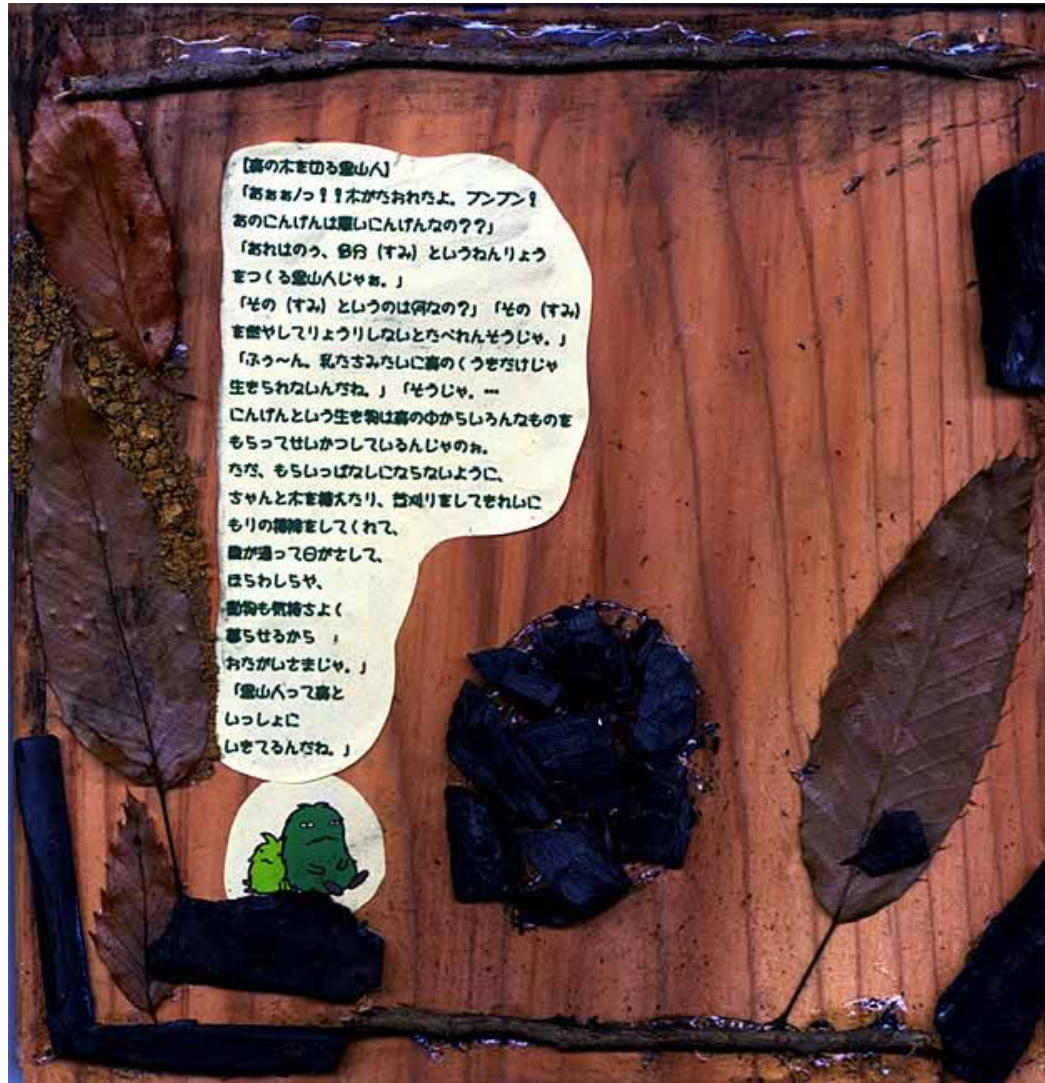 【森の木を切る里山人】
「あぁぁ/っ!!木がたおれたよ。プンプン!
あのにんげんは悪いにんげんなの??」
「あれはのぅ、多分(すみ)というねんりょう
をつくる里山人じゃぁ。」
「その(すみ)というのは何なの?」「その(すみ)
を燃やしてりょうりしないとたべれんそうじゃ。」
「ふぅ〜ん。私たちみたいに森のくうきだけじゃ
生きられないんだね。」「そうじゃ。…
にんげんという生き物は森の中からいろんなものを
もらってせいかつしているんじゃのぉ。
ただ、もらいっぱなしにならないように、
ちゃんと木を植えたり、芝刈りをしてきれいに
もりの掃除をしてくれて、
風が通って日がさして、
ほらわしらや、
動物も気持ちよく
暮らせるから
おたがいさまじゃ。」
「里山人って森と
いっしょに
いきてるんだね。」